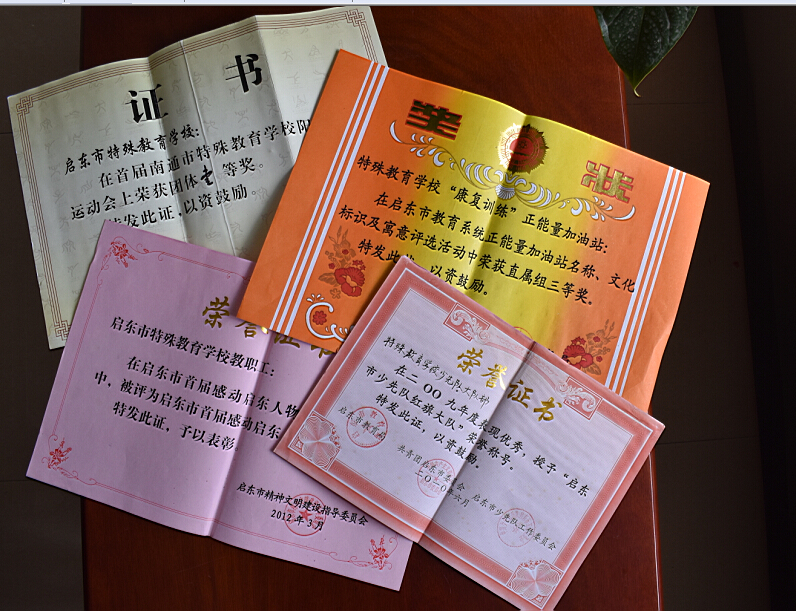 证 书
启东市特殊教育学校:
在首届南通市特殊教育学校阳
运动会上荣获团体 等奖。
特发此证,以资鼓励。
奖 状
特殊教育学校“康复训练”正能量加油站:
在启东市教育系统正能量加油站名称、文化
标识及寓意评选活动中荣获直属组三等奖。
特发此 以资鼓励。
荣誉证书
启东市特殊教育学校教职工:
在启东市首届感动启东人物
中,被评为启东市首届感动启东
特发此证,予以表彰
启东市精神文明建设指导委员会
2012年3月
荣誉证书
特殊教育学校少先队大队部
在二00九年度表现优秀,授予“启东
市少先队红旗大队”荣誉称号。
特发此证,以资鼓励。
启东市教育局 共青团启东市委员会 启东市少先队工作委员会
二0一0年六月